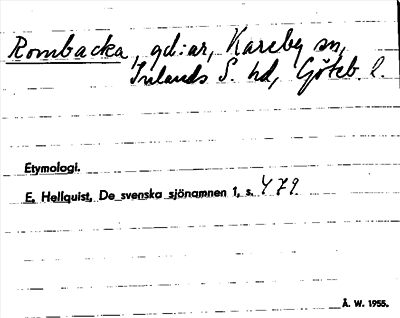 Rombacka, gd:ar, Kareby sn,
Inlands S. hd, Göteb. l.
Etymologi.
E. Hellquist, De svenska sjönamnen 1, s. 479
Å. W. 1955.